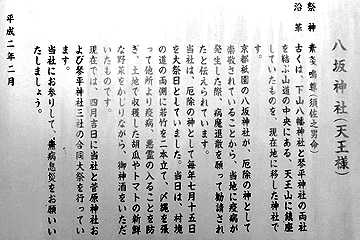 八坂神社(天王様)
祭神 素戔嗚尊(須佐之男命)
沿革 古くは、下山八幡神社と琴平神社の両社
を結ぶ山道の中央にある、天王山に鎮座
していたものを、現在地に移した神社で
す。
京都祇園の八坂神社が、厄除の神として
崇敬されていることから、当地に疫病が
発生した際、病魔退散を願って勧請され
たと伝えられています。
当社は、厄除の神として毎年七月十五日
を大祭日としていました。当日は、村境
の道の両側に若竹を二本立て、〆縄を張
って他所より疫病、悪霊の入ることを防
ぎ、土地で収穫した胡瓜やトマトの新鮮
な野菜をかじりながら、御神酒をいただ
いたものです。
現在では、四月吉日に当社と菅原神社お
よび琴平神社三社の合同大祭を行ってい
ます。
当社にお参りして、無病息災をお願いい
たしましょう。
平成二年二月